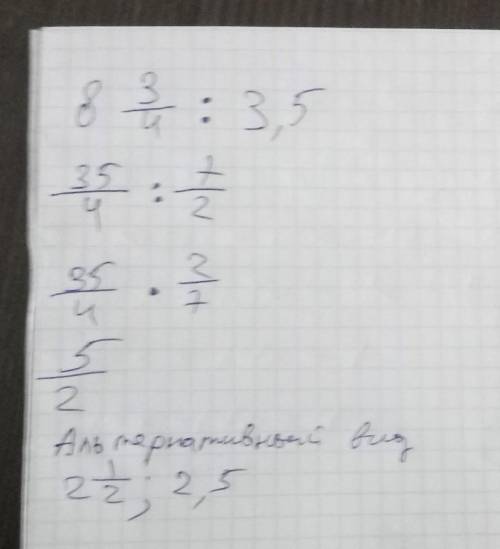 8 3/4 : 3,5
35/4 : 7/2
35/4 · 2/7
5/2
Альтернативный вид
2 1/2; 2,5